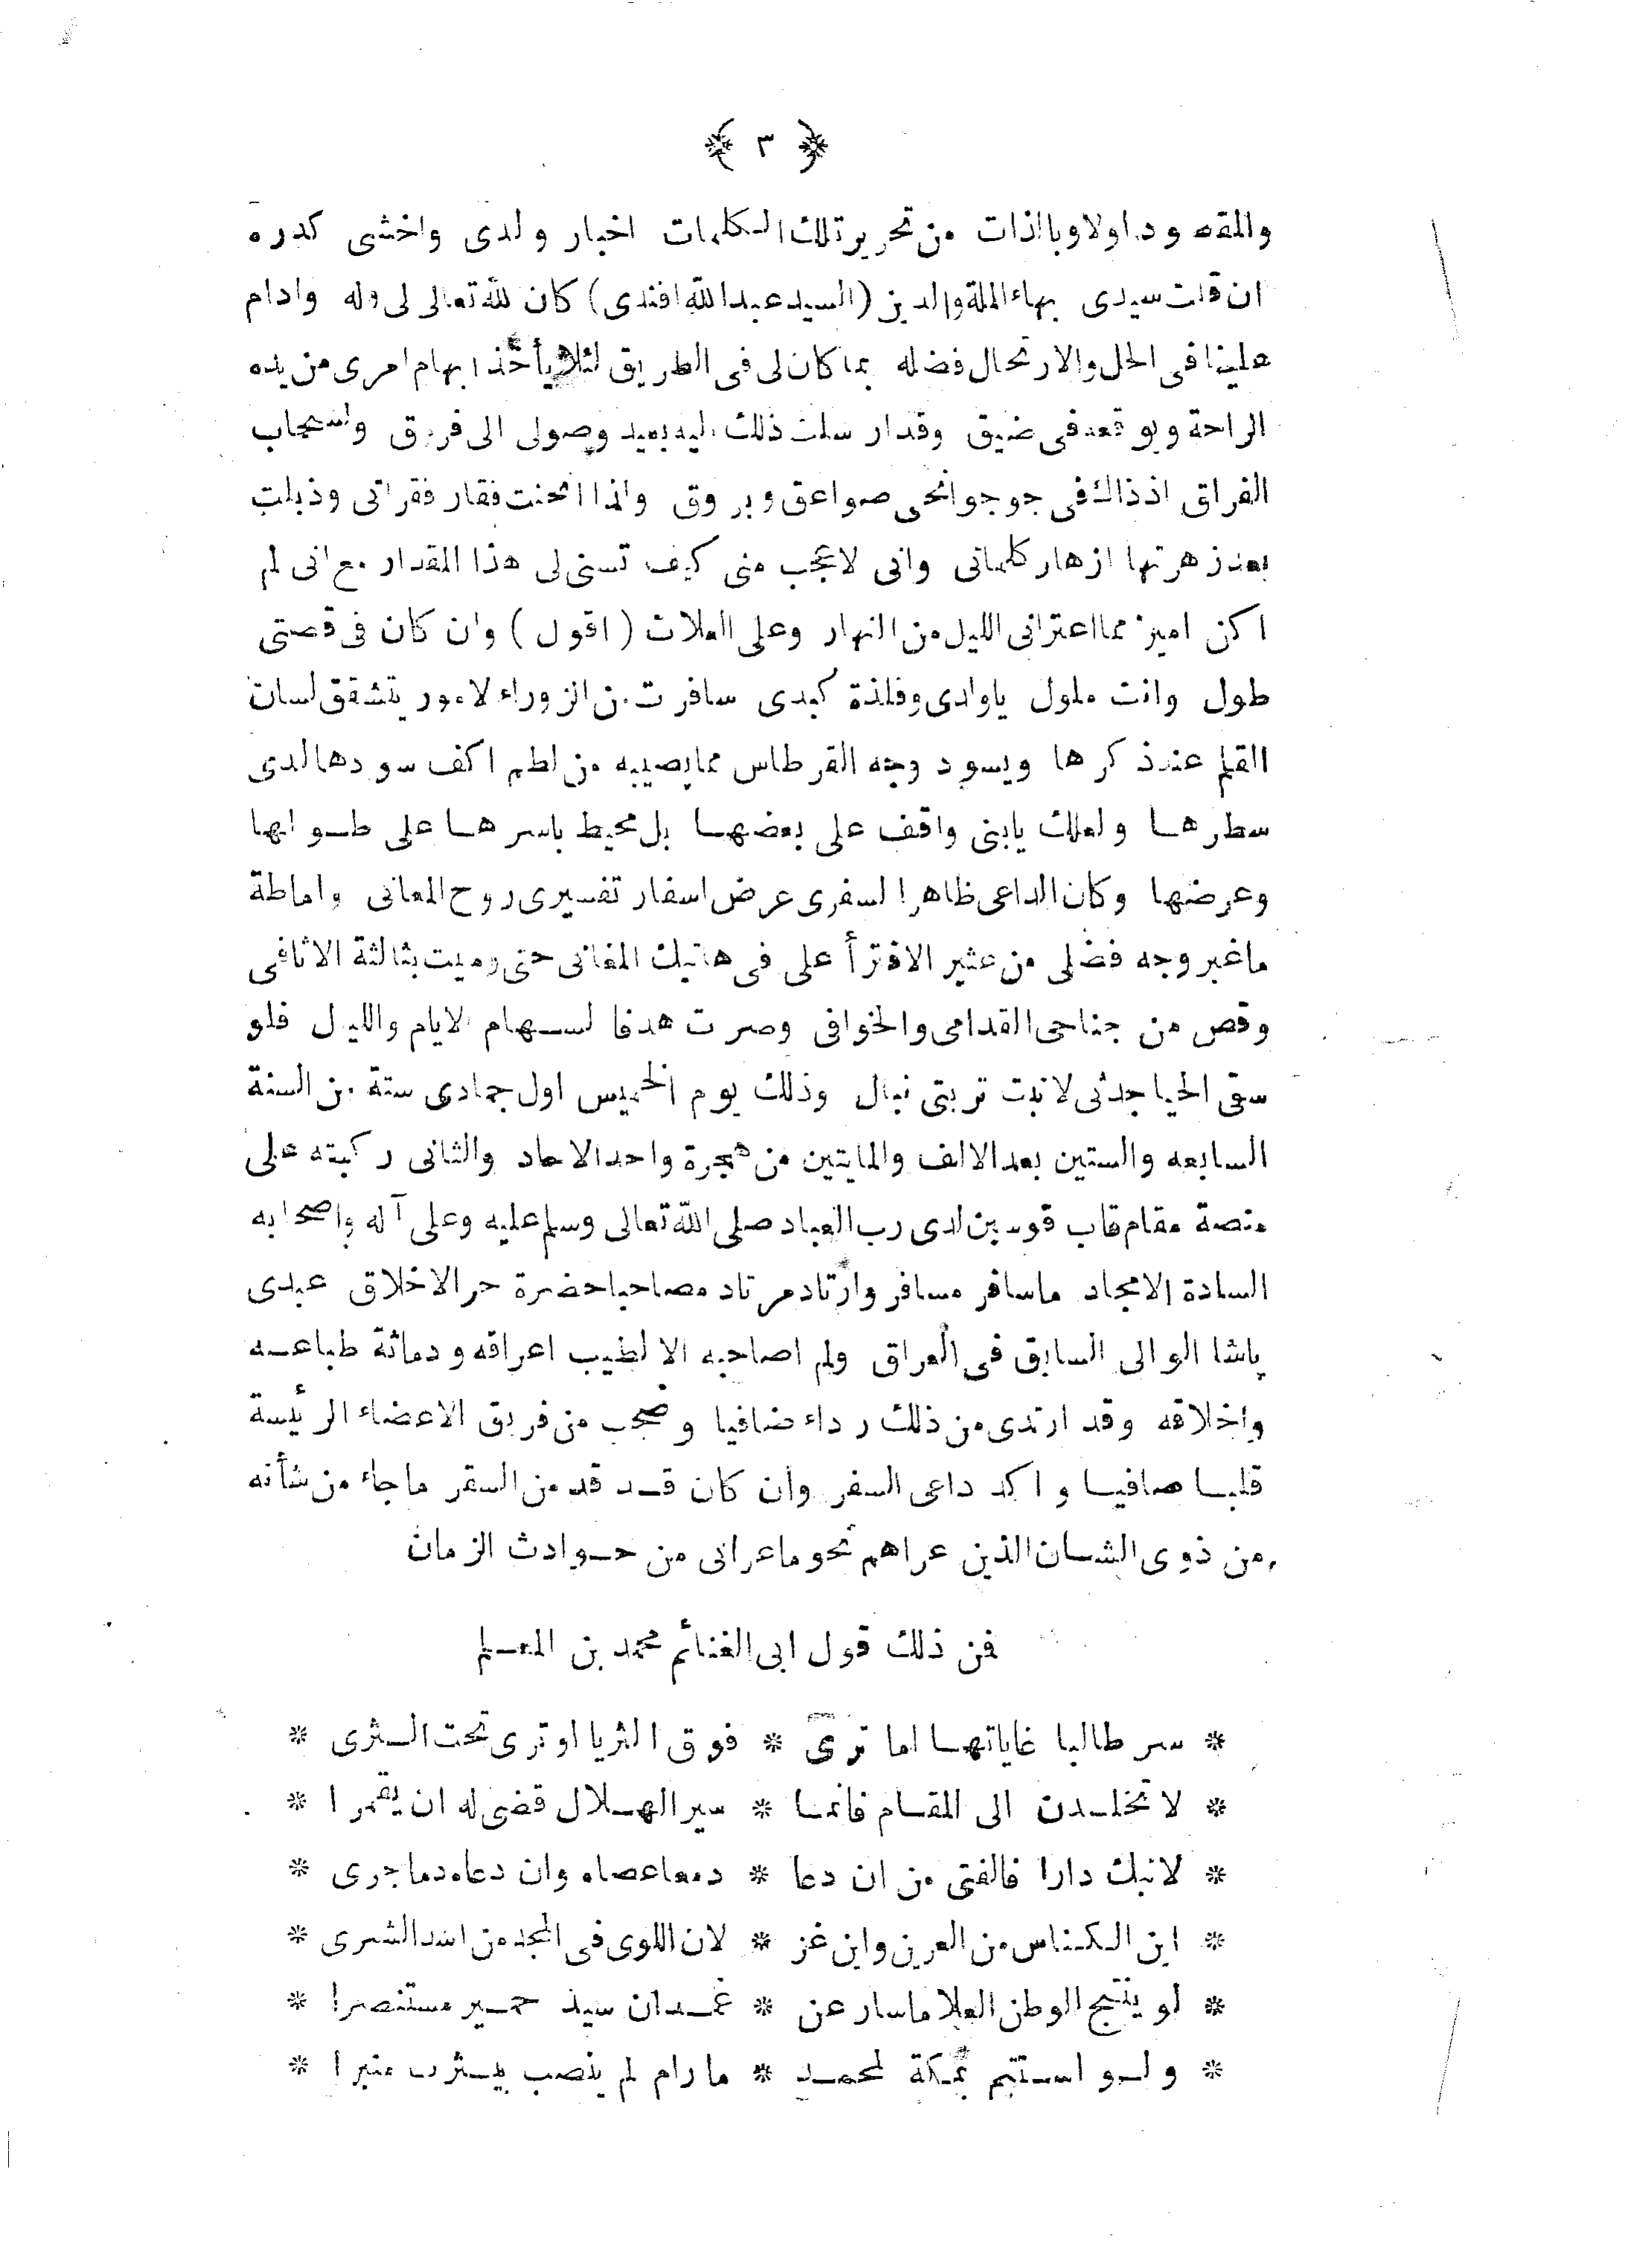 ﴿ ٣ ﴾
والمقصود اولا وبالذات من تحرير تلك الكلمات اخبار ولدى واخشى كدره
ان قلت سيدى بهاء الملة والدين (السيد عبد الله افندى) كان لله تعالى لى وله وادام
علينا فى الحل والارتحال فضله بما كان لى فى الطريق لئلا يأخذ ابهام امرى من يده
الراحة ويوقعه فى ضيق وقد ارسلت ذلك اليه بعيد وصولى الى فروق ولسحاب
الفراق اذ ذاك فى جو جوانحى صواعق وبروق ولذا انحنت فقار فقراتى وذبلت
بعد زهرتها ازهار كلماتى وانى لاعجب منى كيف تسنى لى هذا المقدار مع انى لم
اكن اميز مما اعترانى الليل من النهار وعلى العلات (اقول) وان كان فى قصتى
طول وانت ملول ياولدى وفلذة كبدى سافرت من الزوراء لامور يتشقق لسان
القلم عند ذكرها ويسود وجه القرطاس مما يصيبه من لطم اكف سودها لدى
سطرها ولعلك يابنى واقف على بعضها بل محيط باسرها على طولها
وعرضها وكان الداعى ظاهرا لسفرى عرض اسفار تفسيرى روح المعانى واماطة
ما غبر وجه فضلى من عثير الافترأ على فى هاتيك المغانى حتى رميت بثالثة الاثافى
وقص من جناحى القدامى والخوافى وصرت هدفا لسهام الايام والليال فلو
سقى الحيا جدثى لانبت تربتى نبال وذلك يوم الخميس اول جمادى ستة من السنة
السابعه والستين بعد الالف والمايتين من هجرة واحد الاحاد والثانى ركبته على
منصة مقام قاب قوسين لدى رب العباد صلى الله تعالى وسلم عليه وعلى آله واصحابه
السادة الامجاد ماسافر مسافر وارتاد مرتاد مصاحبا حضرة حر الاخلاق عبدى
پاشا الوالى السابق فى العراق ولم اصاحبه الا لطيب اعراقه ودماثة طباعه
واخلاقه وقد ارتدى من ذلك رداء ضافيا وصحب من فريق الاعضاء الرئيسة
قلبا صافيا واكد داعى السفر وان كان قد قد من السقر ماجاء من شأنه
من ذوى الشان الذين عراهم نحو ما عرانى من حوادث الزمان
فمن ذلك قول ابى الغنائم محمد بن المعلم
* سر طالبا غاياتها اما ترى * فوق الثريا او ترى تحت الثرى *
* لا تخلدن الى المقام فانما * سير الهلال قضى له ان يقمرا *
* لاتبك دارا فالفتى من ان دعا * دمعا عصاه وان دعاه دما جرى *
* اين الكناس من العرين واين غز * لان اللوى فى المجد من اسد الشرى *
* لو ينتج الوطن العلا ماسار عن * غمدان سيد حمير مستنصرا *
* ولو استتم بمكة لمحمد * مارام لم ينصب بيثرب منبرا *